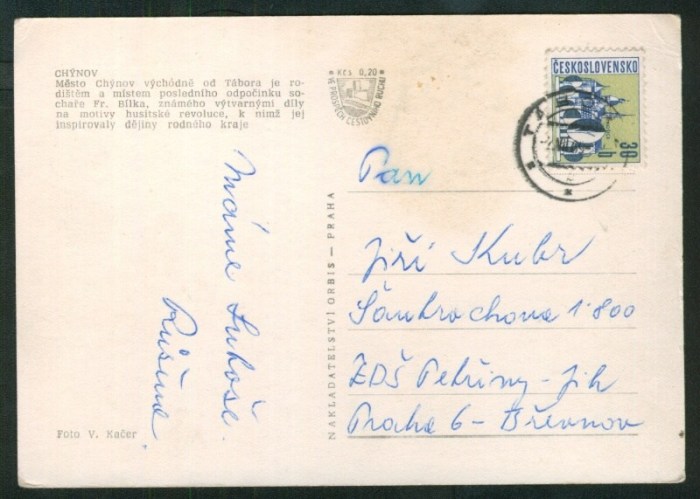 CHÝNOV
Město Chýnov východně od Tábora je ro-
dištěm a místem posledního odpočinku so-
chaře Fr. Bílka, známého výtvarnými díly
na motivy husitské revoluce, k nimž jej
inspirovaly dějiny rodného kraje
Kčs 0,20
VE PROSPĚCH CESTOVNÍHO RUCHU
ČESKOSLOVENSKO
30
h
TÁ
Máme
Rušíme
NAKLADATELSTVÍ ORBIS — PRAHA
Pan
Jiří Kubr
Šantrochova 1800
ZDŠ Petřiny - jih
Praha 6 - Břevnov
Foto V. Kačer